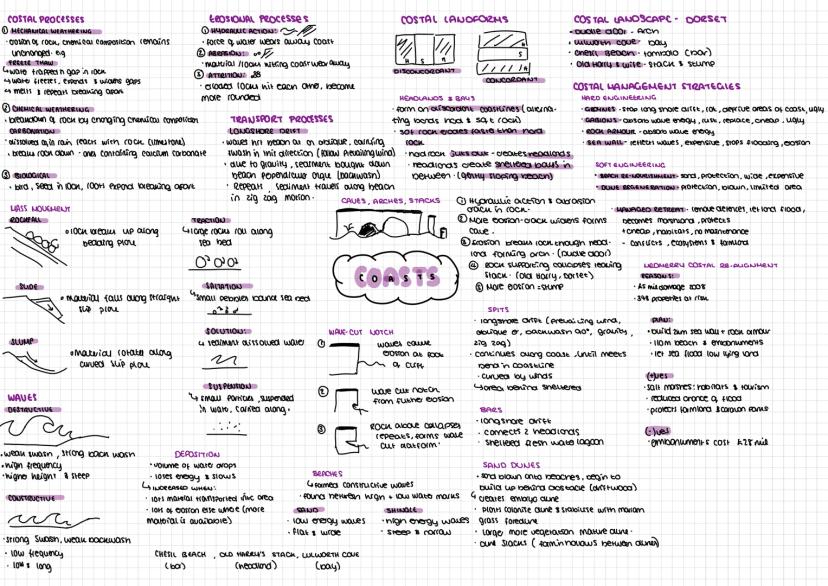 COSTAL PROCESSES
① MECHANICAL WEATHERING
- erosion of rock, chemical composition remains
unchanged. e.g
FREEZE THAW
↳ water trapped in gap in rock
↳ water freezes, expands & widens gaps
↳ melts & repeats breaking apart
② CHEMICAL WEATHERING
• breakdown of rock by changing chemical composition
CARBONATION
• dissolved in rain reacts with rock (limestone)
• breaks rock down - ones containing calcium carbonate
③ BIOLOGICAL
• bird, seed in rock, roots expand breaking apart
MASS MOVEMENT
ROCKFALL
• rock breaks up along
bedding plane
SLIDE
• material falls along straight
slip plane
SLUMP
• material rotates along
curved slip plane
WAVES
DESTRUCTIVE
• weak swash, strong back wash
• high frequency
• higher height & steep
CONSTRUCTIVE
• strong swash, weak backwash
• low frequency
• low & long
EROSIONAL PROCESSES
① HYDRAULIC ACTION:
• force of water wears away coast
② ABRASION:
• material / rock hitting coast wear away
③ ATTRITION:
• eroded rocks hit each other, become
more rounded
TRANSPORT PROCESSES
LONGSHORE DRIFT
• waves hit beach at an oblique, carrying
swash in this direction (follow prevailing wind)
• due to gravity, sediment bought down
beach perpendicular angle (backwash)
• Repeats, sediment travels along beach
in zig zag motion.
TRACTION
↳ large rocks roll along
sea bed
SALTATION
↳ small pebbles bounce sea bed
SOLUTION:
↳ sediment dissolved water
SUSPENTION
↳ small particles, suspended
in water, carried along.
DEPOSITION
• volume of water drops
• loses energy & slows
↳ INCREASED WHEN:
• lots material transported into area
• lots of erosion else where (more
material is available)
CHESIL BEACH, OLD HARRY'S STACK, LULWORTH COVE
(bar) (headland) (bay)
COSTAL LANDFORMS
DISCONCORDANT
CONCORDANT
HEADLANDS & BAYS
• form on discordant coastlines (alterna-
ting bands hard & soft rock)
• soft rock erodes faster than hard
rock
• hard rock juts out - creates headlands
• headlands create sheltered bays in
between (gently sloping beach)
CAVES, ARCHES, STACKS
① Hydraulic action & abrasion
crack in rock.
② More erosion - crack widens forms
cave.
③ Erosion breaks rock through head-
land forming arch. (Durdle door)
④ Rock supporting collapses leaving
stack. (Old Harry, Dorset)
⑤ More erosion = stump
COASTS
WAVE-CUT NOTCH
① waves cause
erosion at foot
of cliff
② wave cut notch
from further erosion
③ Rock above collapses
repeats, forms wave
cut platform.
BEACHES
↳ formed constructive waves
• found between high & low water marks
SAND
• low energy waves
• flat & wide
SHINGLE
• high energy waves
• steep & narrow
SPITS
• longshore drift (prevailing wind,
oblique θ, backwash 90°, gravity,
zig zag)
• continues along coast, until meets
bend in coastline
• curved by winds
↳ area behind sheltered
BARS
• longshore drift
• connects 2 headlands
• sheltered fresh water lagoon
SAND DUNES
• sand blown onto beaches, begin to
build up behind obstacle (driftwood)
↳ creates embryo dune
• plants colonite dune & stabilise with marram
grass foredune
• larger more vegetation mature dune.
• dune slacks (form hollows between dunes)
COSTAL LANDSCAPE - DORSET
• Durdle door - Arch
• Lulworth cove - bay
• Chesil Beach - tombolo (bar)
• Old Harry & wife - stack & stump
COSTAL MANAGEMENT STRATEGIES
HARD ENGINEERING
• GROYNES - stop long shore drift, rot, deprive areas of coast, ugly
• GABIONS - absorb wave energy, rust, replace, cheap, ugly
• ROCK ARMOUR - absorb wave energy
• SEA WALL - reflect waves, expensive, stops flooding, erosion
SOFT ENGINEERING
• BEACH RE-NOURISHMENT - sand, protection, wide, expensive
• DUNE REGENERATION - protection, blown, limited area
• MANAGED RETREAT - remove defenses, let land flood,
becomes marshland, protects
• cheap, habitats, no maintenance
- conflicts, ecosystems & farmland
MEDMERRY COSTAL RE-ALIGNMENT
REASONS:
• £5 mil damage 2008
• 348 properties at risk
PLAN:
• build 2km sea wall + rock armour
• 110m beach & embankments
• let sea flood low lying land
(+)ves
• salt marshes: habitats & tourism
• reduced chance of flood
• protect farmland & caravan parks
(-)ves
• embankments cost £28 mil